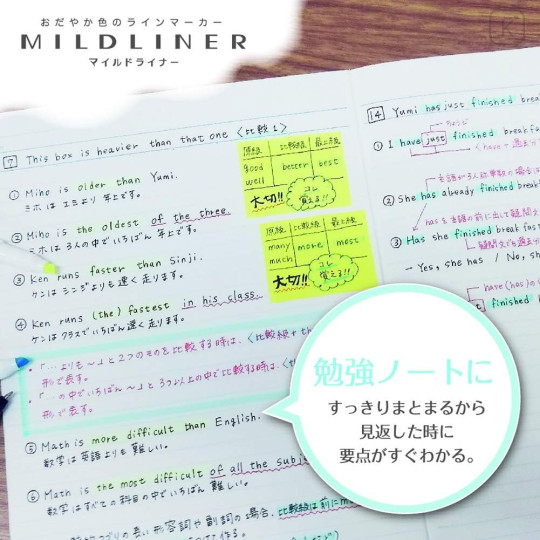 おだやか色のラインマーカー
MILDLINER
マイルドライナー
7 This box is heavier than that one 〈比較1〉
① Miho is older than Yumi.
ミホはユミより年上です。
② Miho is the oldest of the three.
ミホは3人の中でいちばん年上です。
③ Ken runs faster than Sinji.
ケンはシンジよりも速く走ります。
④ Ken runs (the) fastest in his class.
ケンはクラスでいちばん速く走ります。
・「…よりも〜」と2つのものを比較する時は、〈比較級+th
形で表す。
・「…の中でいちばん〜」と3つ以上の中で比較する時は、〈th
形で表す。
⑤ Math is more difficult than English.
数学は英語よりも難しい。
⑥ Math is the most difficult of all the subje
数学はすべての科目の中でいちばん難しい。
つづりの長い形容詞や副詞の場合、比較級は前にm
原級 比較級 最上級
good better best
well
大切!! コレ覚える!!
原級 比較級 最上級
many more most
much
大切!! コレ覚える!!
14 Yumi has just finished break
ちょうど
① I have just finished breakfa
〈have+過去
主語が3人称単数の場合は
② She has already finished break
hasを主語の前に出して疑問文
③ Has she finished break fas
疑問文でも過去
- Yes, she has / No, she
have(has)の
finished l
勉強ノートに
すっきりまとまるから
見返した時に
要点がすぐわかる。